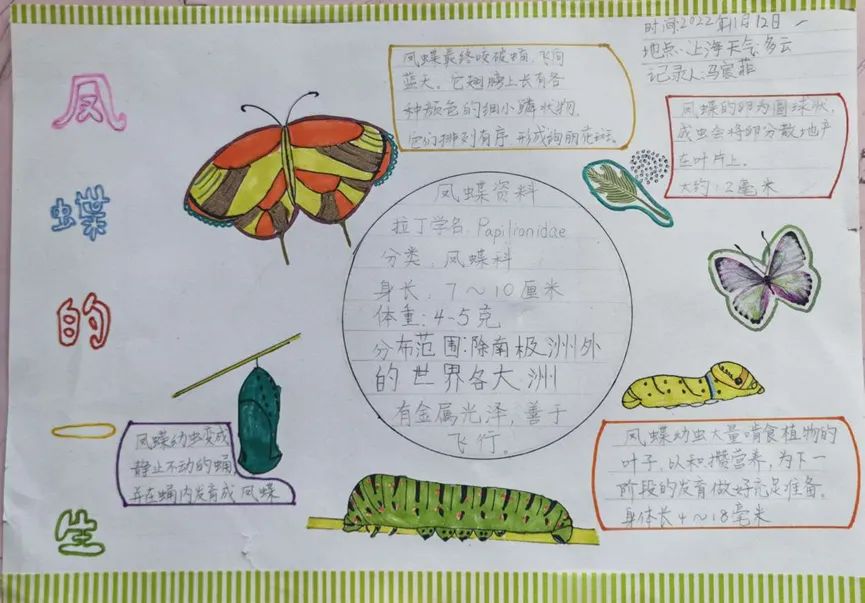 凤
蝶
的
一
生
时间:2022年11月12日
地点:上海 天气:多云
记录人:马宸菲
凤蝶最终咬破蛹,飞向
蓝天。它翅膀上长有各
种颜色的细小鳞状物,
它们排列有序 形成绚丽花斑。
凤蝶的卵为圆球状,
成虫会将卵分散地产
在叶片上。
大约:2毫米
凤蝶资料
拉丁学名:Papilionidae
分类:凤蝶科
身长:7~10厘米
体重:4-5克
分布范围:除南极洲外
的世界各大洲
有金属光泽,善于
飞行。
凤蝶幼虫变成
静止不动的蛹
并在蛹内发育成 凤蝶
凤蝶幼虫大量啃食植物的
叶子,以积攒营养,为下一
阶段的发育做好充足准备。
身体长4~18毫米